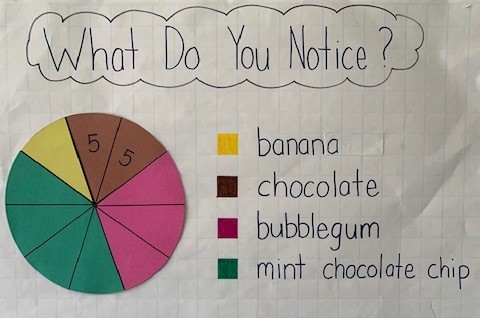 What Do You Notice?
5 5
banana
chocolate
bubblegum
mint chocolate chip